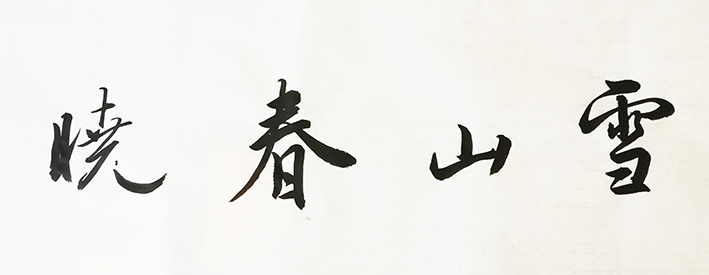 雪山春曉